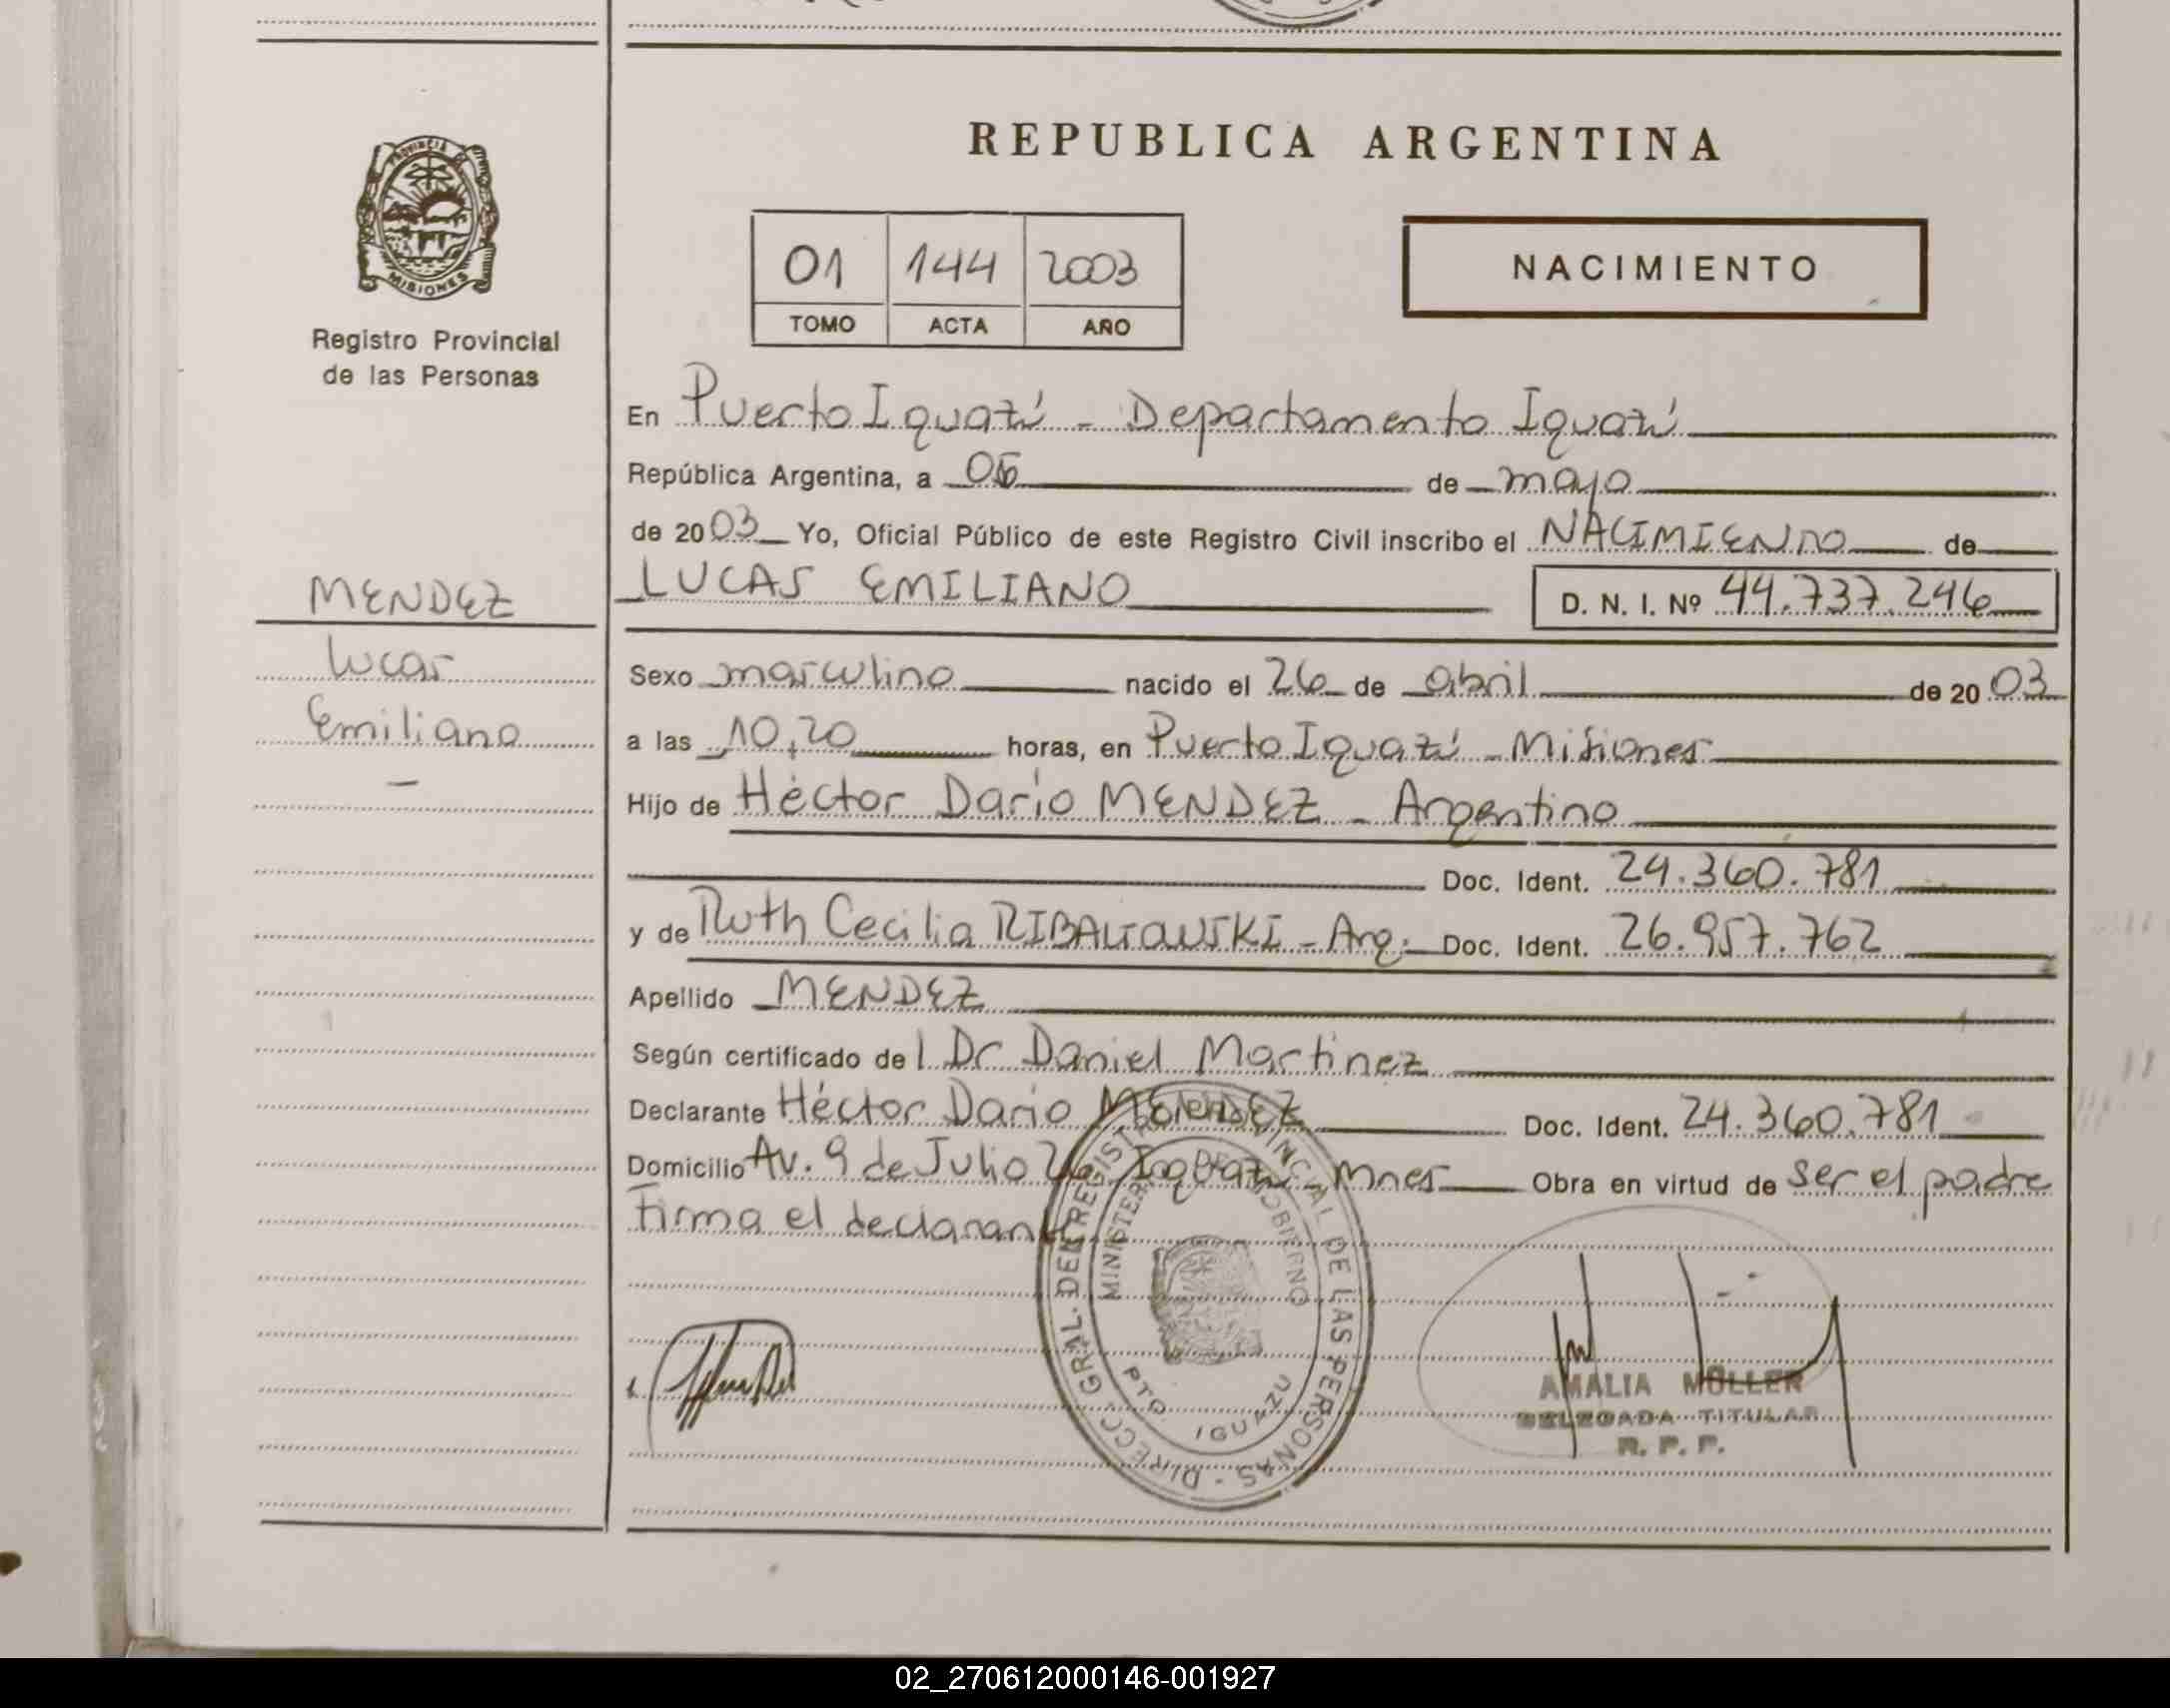 REPUBLICA ARGENTINA
PROVINCIA DE
MISIONES
Registro Provincial
de las Personas
01 144 2003
TOMO ACTA AÑO
NACIMIENTO
En Puerto Iguazú - Departamento Iguazú
República Argentina, a de mayo
de 2003 Yo, Oficial Público de este Registro Civil inscribo el NACIMIENTO de
LUCAS EMILIANO D. N. I. Nº 44.737.246
MENDEZ
Lucas
Emiliano
Sexo masculino nacido el 26 de abril de 2003
a las 10,20 horas, en Puerto Iguazú - Misiones
Hijo de Héctor Darío MENDEZ - Argentino
Doc. Ident. 24.360.781
y de Ruth Cecilia RIBALTOWSKI - Arg. Doc. Ident. 26.957.762
Apellido MENDEZ
Según certificado del Dr Daniel Martinez
Declarante Héctor Dario MENDEZ Doc. Ident. 24.360.781
Domicilio Av. 9 de Julio 26 Iguazú - Mnes Obra en virtud de ser el padre
Firma el declarante
DIRECC. GRAL. DEL REGISTRO PROVINCIAL DE LAS PERSONAS
MINISTERIO DE GOBIERNO
PTO. IGUAZU
AMALIA MÜLLER
DELEGADA TITULAR
R. P. P.
02_270612000146-001927